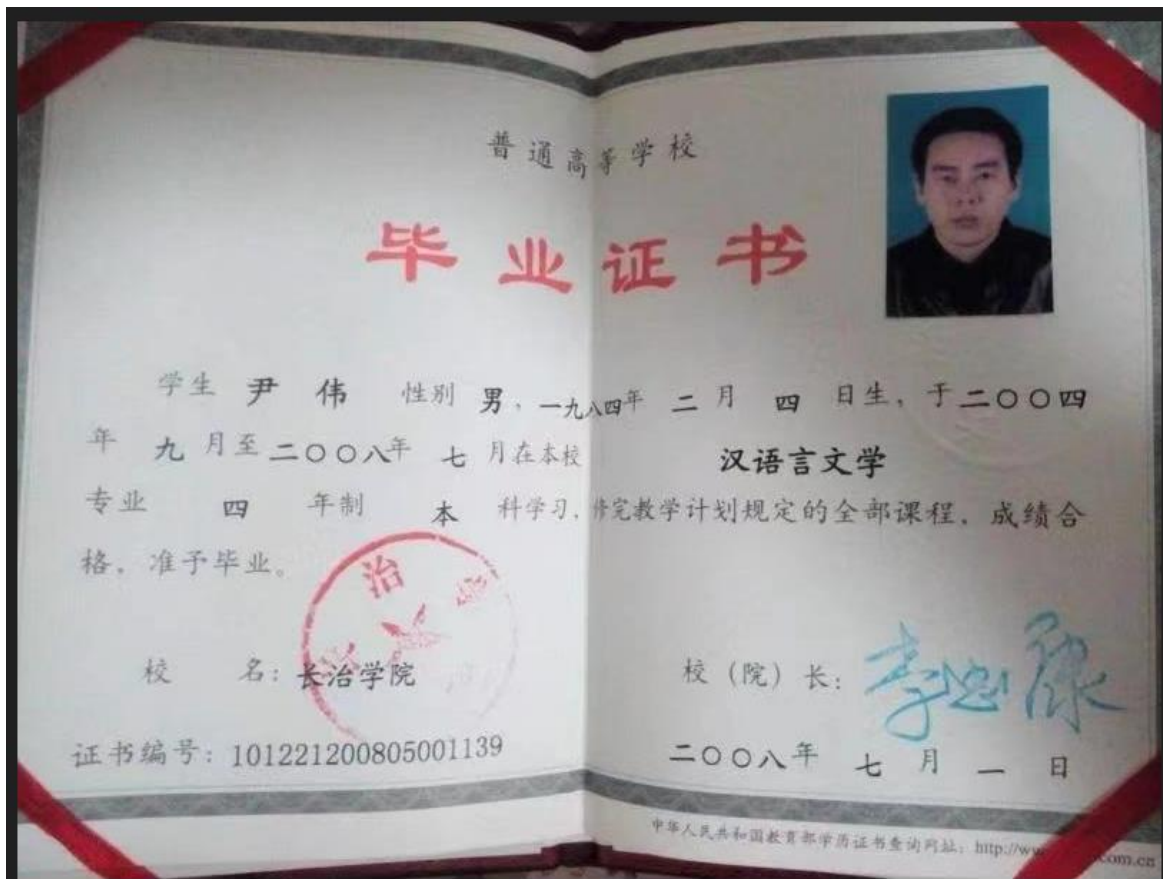 普通高等学校
毕业证书
学生 尹 伟 性别 男，一九八四年 二 月 四 日生，于二〇〇四
年 九 月至二〇〇八年 七 月在本校 汉语言文学
专业 四 年制 本 科学习，修完教学计划规定的全部课程，成绩合
格，准予毕业。
治
校 名：长治学院
校（院）长：
证书编号：101221200805001139
二〇〇八年 七 月 一 日
中华人民共和国教育部学历证书查询网址：http://ww com.cn